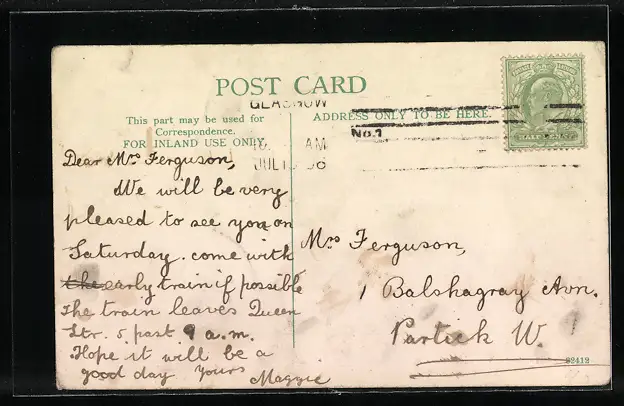 POST CARD
This part may be used for
Correspondence.
FOR INLAND USE ONLY.
ADDRESS ONLY TO BE HERE.
GLASGOW
No.1
AM
Dear Mrs Ferguson,
We will be very
pleased to see you on
Saturday. come with
the early train if possible
The train leaves Queen
Str. 5 past 9 a.m.
Hope it will be a
good day Yours
Maggie
Mrs Ferguson,
1 Balshagray Avn.
Partick W.